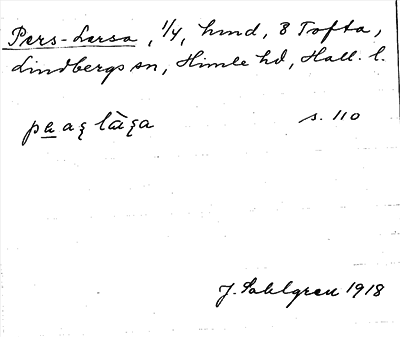 Pers-Larsa, 1/4, hmd, 8 Tofta,
Lindbergs sn, Himle hd, Hall. l.
s. 110
J. Sahlgren 1918